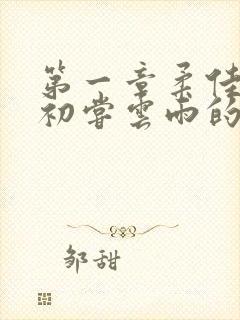 第一章柔佳
初尝云雨的
邹甜